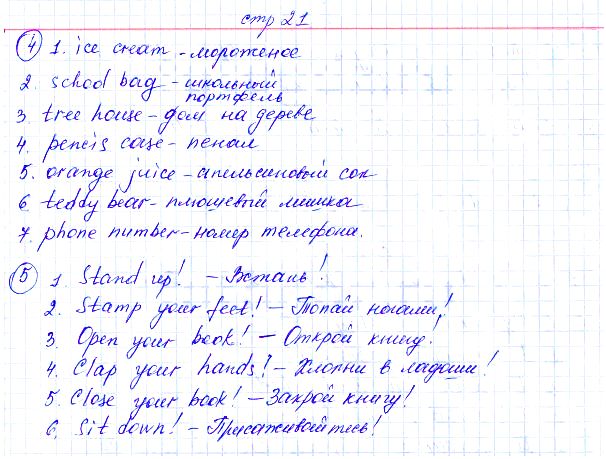 стр 21
4 1. ice cream - мороженое
2. school bag - школьный
портфель
3. tree house - дом на дереве
4. pencis case - пенал
5. orange juice - апельсиновый сок
6 teddy bear - плюшевый мишка
7. phone number - номер телефона.
5 1 Stand up! - Встань!
2. Stamp your feet! - Топай ногами!
3. Open your book! - Открой книгу!
4. Clap your hands! - Хлопни в ладоши!
5. Close your book! - Закрой книгу!
6. Sit down! - Присаживайтесь!